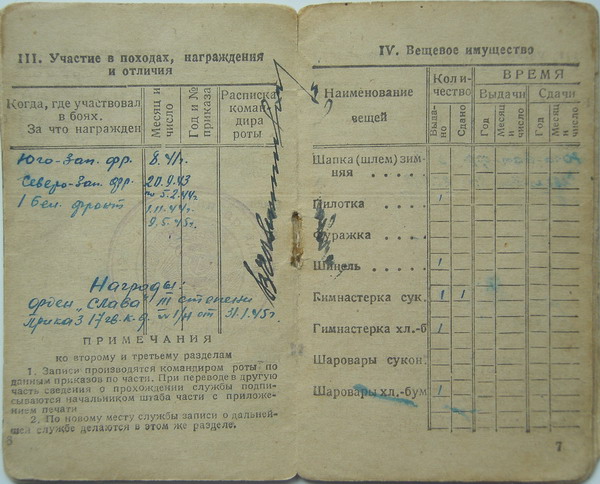 III. Участие в походах, награждения
и отличия
Когда, где участвовал
в боях.
За что награжден
Месяц и
число
Год и №
приказа
Расписка
коман-
дира
роты
Юго-Зап. фр. 8.41г.
Северо-Зап. фр. 20.9.43
по 5.2.44г.
1 Бел. фронт 1.11.44г.
9.5.45г.
Награды:
орден "Слава" III степени
приказ 17 гв. к. д. № 1/н от 31.1.45г.
ПРИМЕЧАНИЯ
ко второму и третьему разделам
1. Записи производятся командиром роты по
данным приказов по части. При переводе в другую
часть сведения о прохождении службы подпи-
сываются начальником штаба части с приложе-
нием печати
2. По новому месту службы записи о дальней-
шей службе делаются в этом же разделе.
6
IV. Вещевое имущество
Наименование
вещей
Коли-
чество
ВРЕМЯ
Выдачи
Сдачи
Выда-
но
Сдано
Год
Месяц
и
число
Год
Месяц
и
число
Шапка (шлем) зим-
няя . . . . .
Пилотка . . . . 1
Фуражка . . . .
Шинель . . . . 1
Гимнастерка сук. 1 1
Гимнастерка хл.-б 1
Шаровары сукон.
Шаровары хл.-бум 1
7